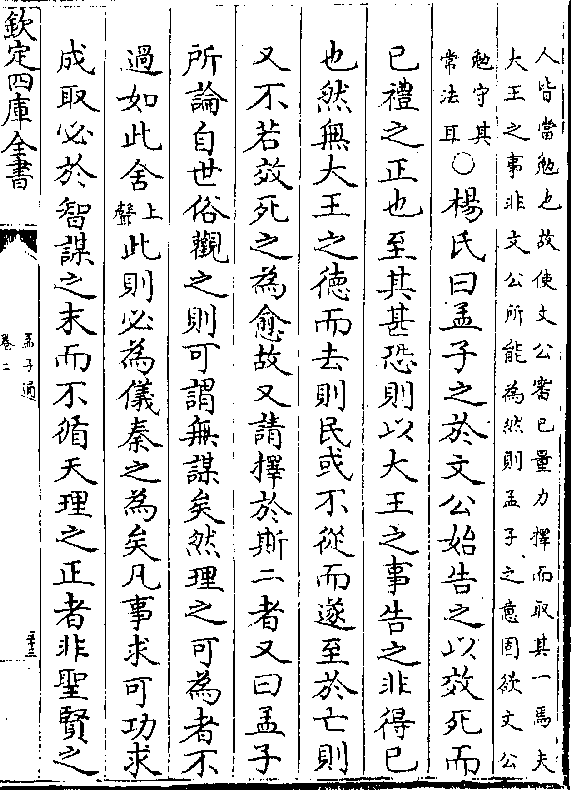 人皆當勉也故使文公審已量力擇而取其一焉夫
大王之事非文公所能為然則孟子之意固欲文公
勉守其
常法耳
○楊氏曰孟子之於文公始告之以效死而
已禮之正也至其甚恐則以大王之事告之非得已
也然無大王之德而去則民或不從而遂至於亡則
又不若效死之為愈故又請擇於斯二者又曰孟子
所論自世俗觀之則可謂無謀矣然理之可為者不
過如此舍上聲此則必為儀秦之為矣凡事求可功求
成取必於智謀之末而不循天理之正者非聖賢之
欽定四庫全書
孟子通
卷二
三十三